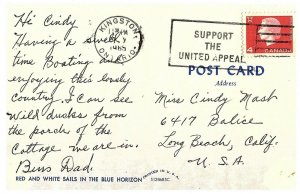 Hi Cindy
Having a swell
time Boating and
enjoying this lovely
country. I can see
Wild ducks from
the porch of the
Cottage we are in.
Dad.
RED AND WHITE SAILS IN THE BLUE HORIZON
KINGSTON
1965
ONTARIO
SUPPORT
THE
UNITED APPEAL
4
POST CARD
Address
Miss Cindy Mast
6417
Long Beach, Calif.
U.S.A